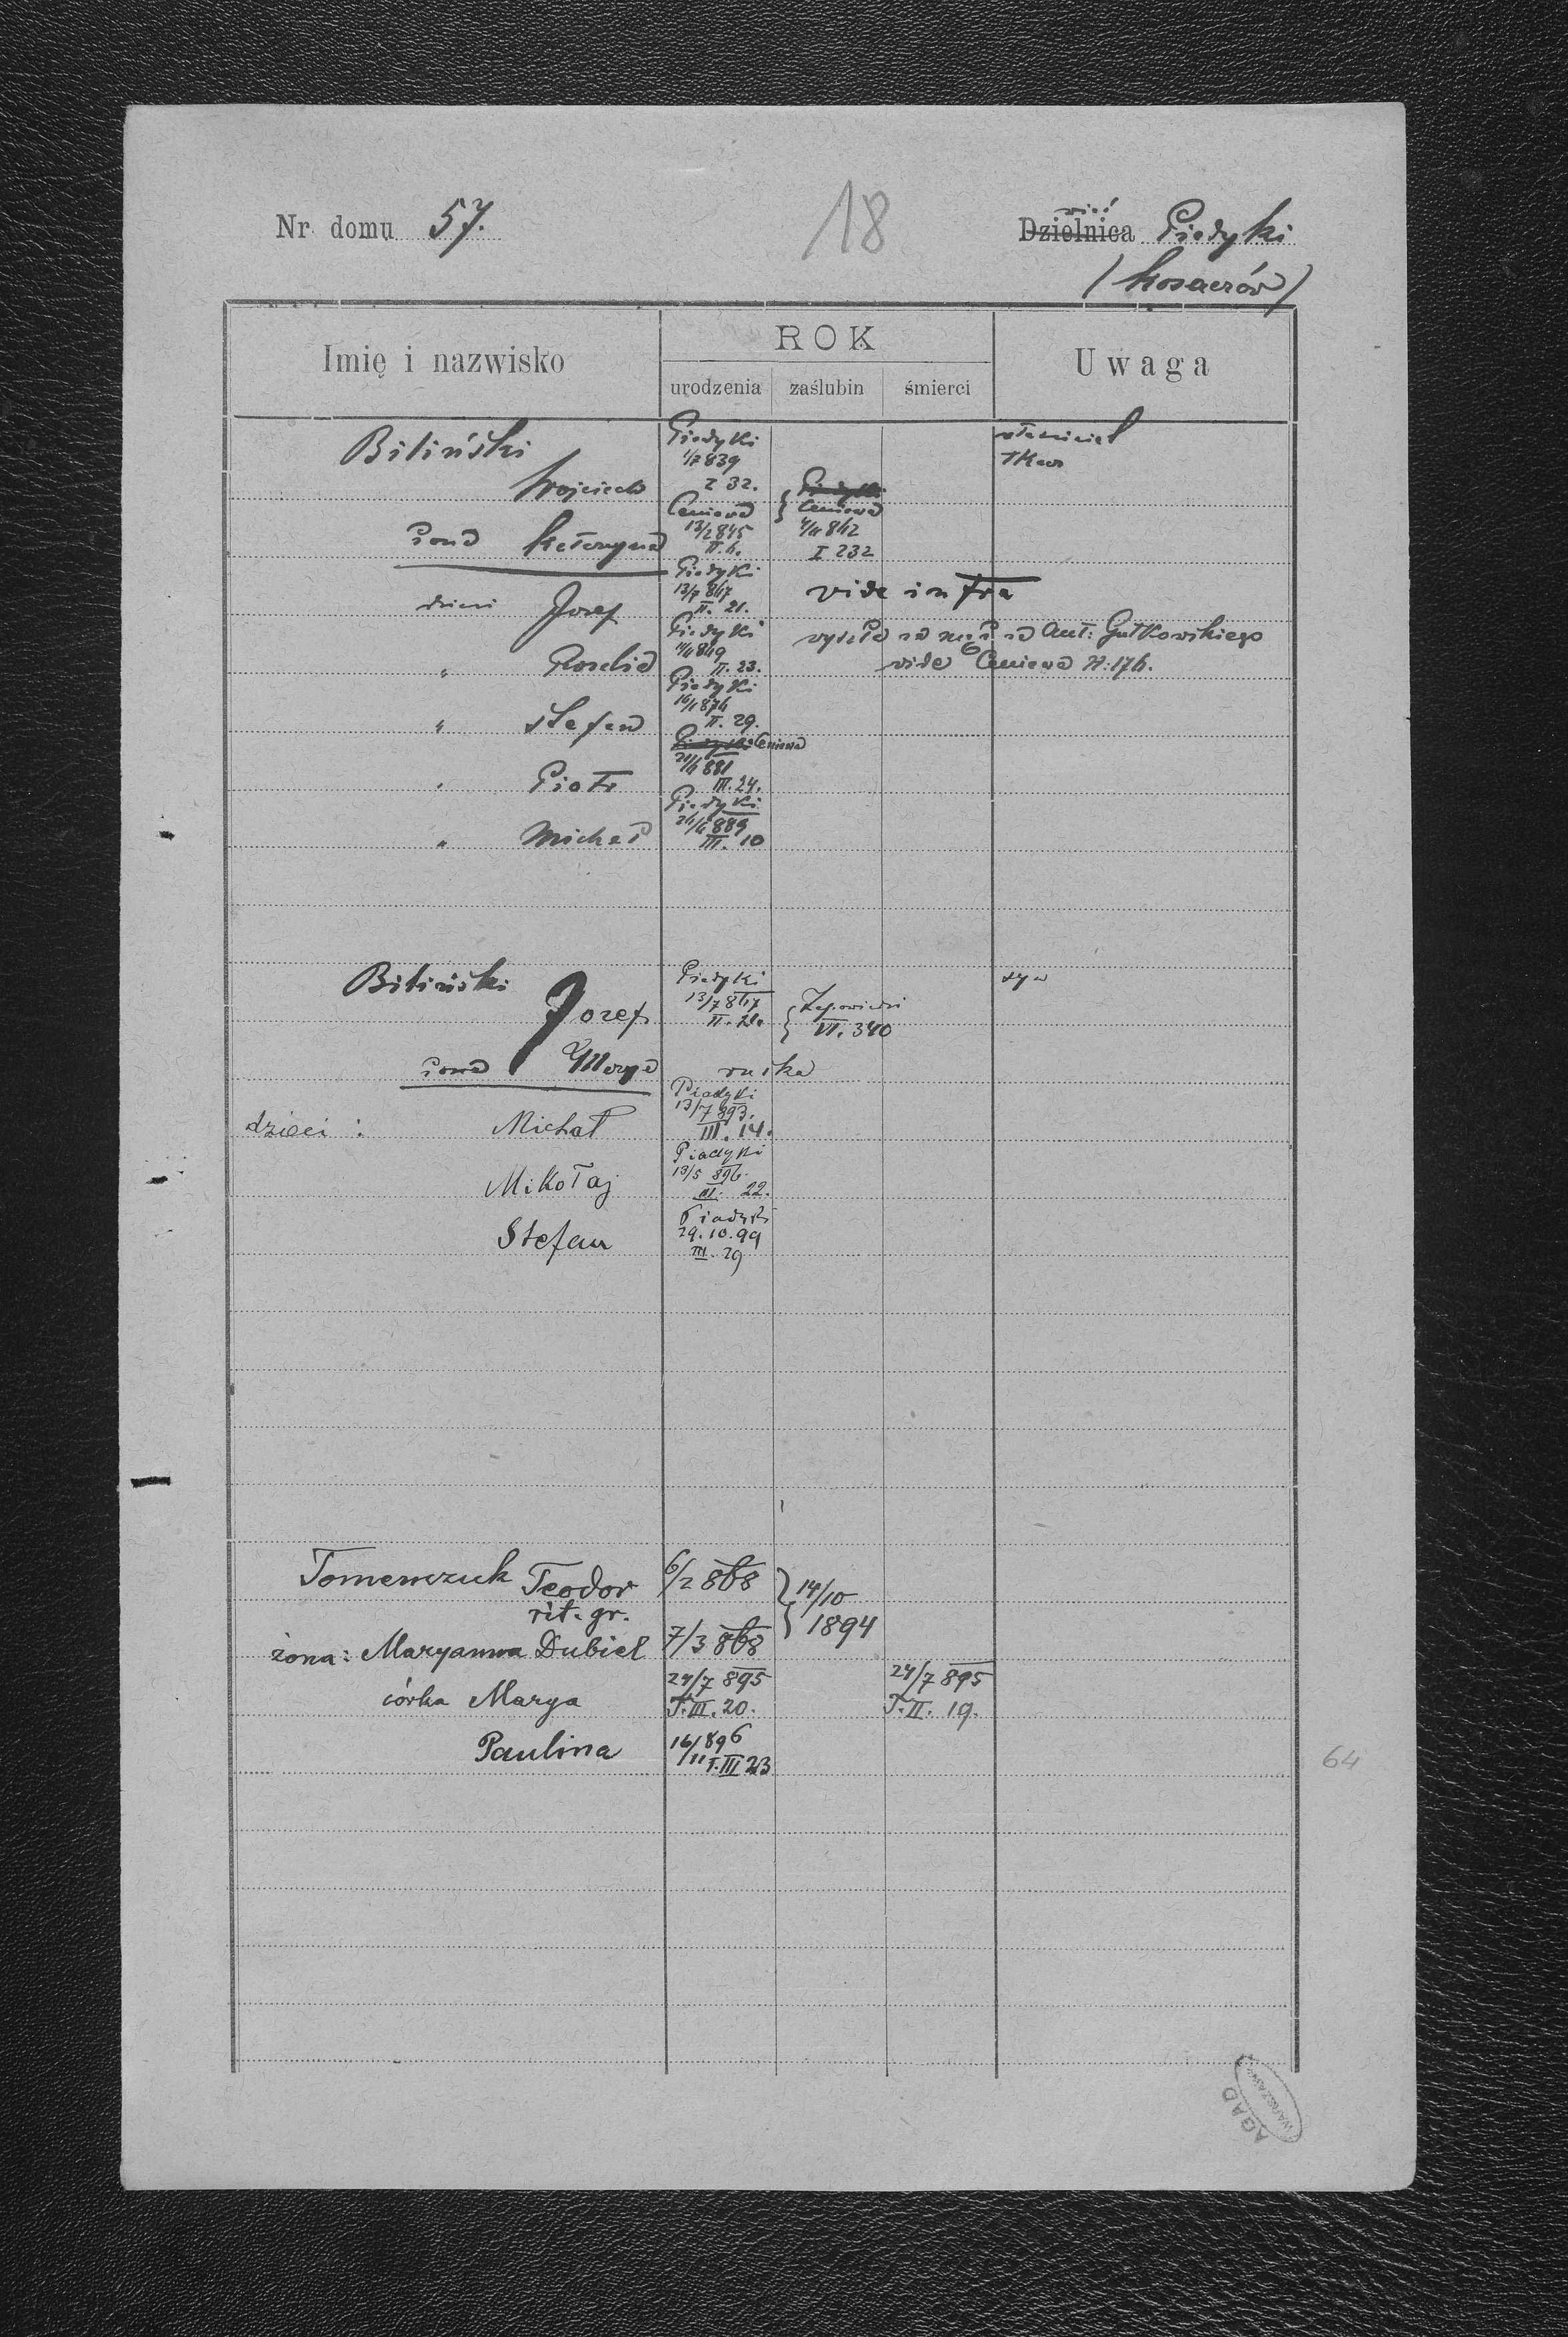 Nr domu 57.
18
wieś
Dzielnica Piadyki
(Kosaczów)
Imię i nazwisko
ROK
urodzenia zaślubin śmierci
Uwaga
Biliński Piadyki
1/7 839
Wojciech I 32.
Ceniawa Ceniawa
żona Katarzyna 13/2 845 4/4 842
II. 4. I 232
Piadyki
dzieci Józef 13/7 867 vide infra
II. 21.
Piadyki wyszła za mąż za Ant: Gutkowskiego
" Rozalia II. 23. vide Ceniawa N: 176.
Piadyki
" Stefan 16/1 874
II. 29.
Piadyki Ceniawa
" Piotr 21/4 881
III. 24.
Piadyki
" Michał 24/4 889
III. 10
Biliński Piadyki syn
Józef 13/7 867 Zapowiedzi
II. 21. VI. 340
żona Marya ruska
Piadyki
dzieci : Michał 13/7 893.
III. 14.
Piadyki
Mikołaj 13/5 896.
III. 22.
Piadyki
Stefan 29.10.99
III. 29
Tomenczuk Teodor 6/2 868 14/10
rit. gr. 1894
żona: Maryanna Dubiel 7/3 868
córka Marya 24/7 895 24/7 895
T. III. 20. T. II. 19.
Paulina 16/11 896
T. III 23
64
AGAD
WARSZAWA